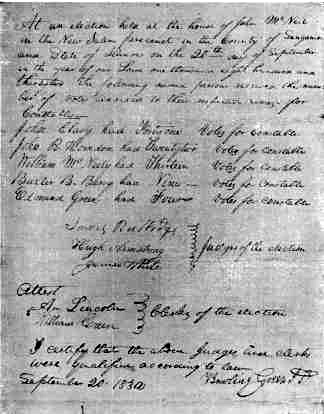 At an election held at the house of John McNeil
in the New Salem precinct in the County of Sangamon
and State of Illinois on the 20th day of September
in the year of our Lord one thousand eight hundred and
the following named person received the number
of votes annexed to their respective names for
Constable
John Clary had Fortyone Votes for constable
John R Herndon had Twentytwo Votes for constable
William McNeely had Thirteen Votes for constable
Baxter B. Berry had Nine Votes for constable
Edmund Greer had Four Votes for constable
James Rutledge
Hugh Armstrong
James White
Judges of the election
Attest
A. Lincoln
William Green
Clerks of the election
I certify that the above Judges and clerks
were qualified according to law
September 20. 1832
Bowling Green J P